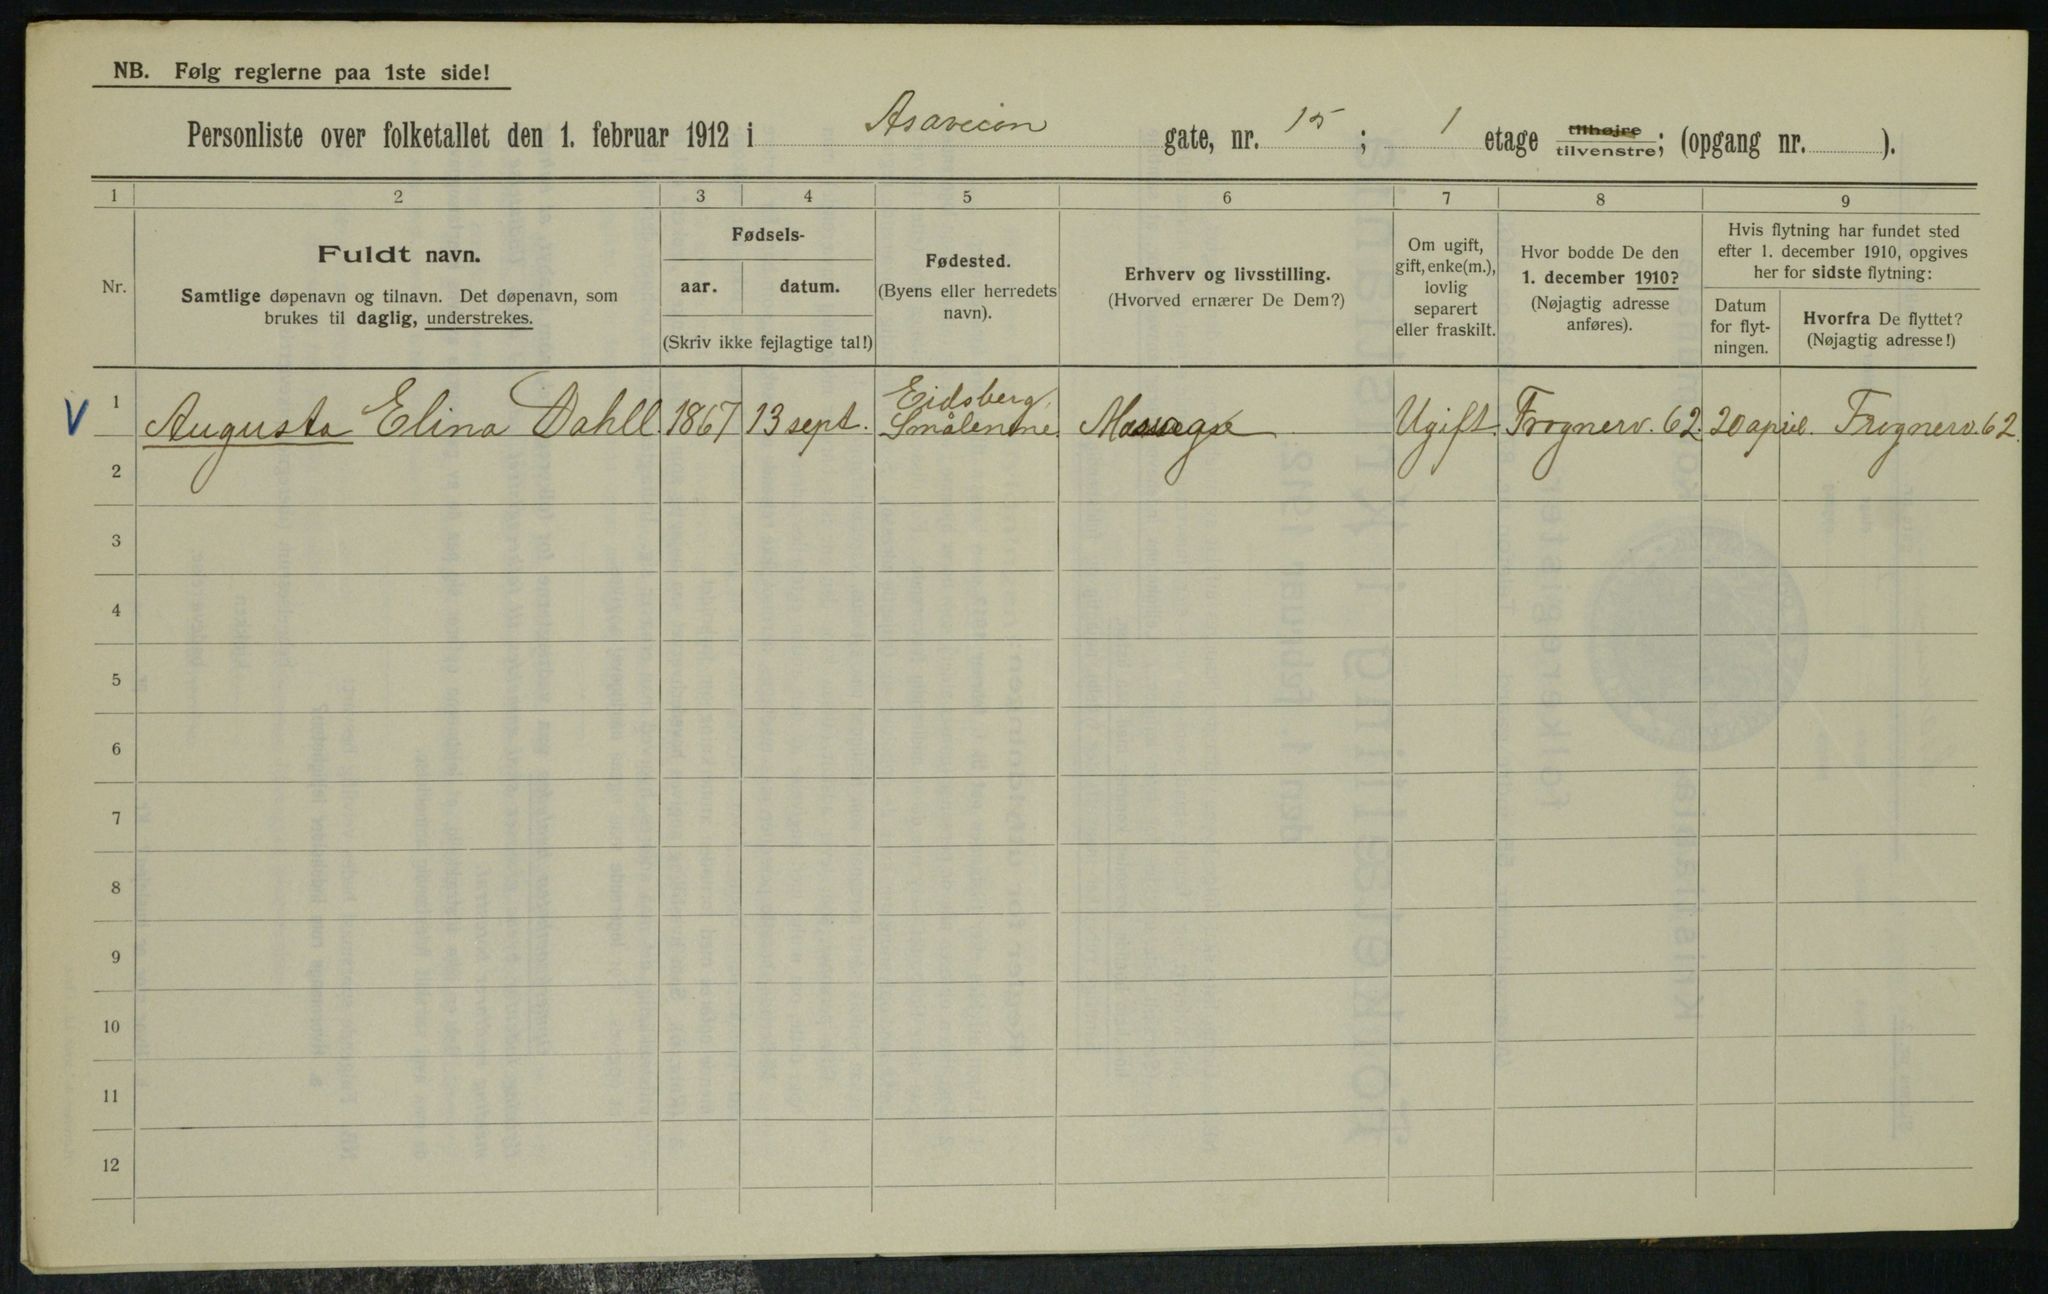 NB. Følg reglerne paa 1ste side!
Personliste over folketallet den 1. februar 1912 i Asaveien gate, nr. 15; 1 etage tilhøjre tilvenstre; (opgang nr. ).
1 2 3 4 5 6 7 8 9
Nr.
Fuldt navn.
Samtlige døpenavn og tilnavn. Det døpenavn, som
brukes til daglig, understrekes.
Fødsels-
aar. datum.
(Skriv ikke fejlagtige tal!)
Fødested.
(Byens eller herredets
navn).
Erhverv og livsstilling.
(Hvorved ernærer De Dem?)
Om ugift,
gift, enke(m.),
lovlig
separert
eller fraskilt.
Hvor bodde De den
1. december 1910?
(Nøjagtig adresse
anføres).
Hvis flytning har fundet sted
efter 1. december 1910, opgives
her for sidste flytning:
Datum
for flyt-
ningen.
Hvorfra De flyttet?
(Nøjagtig adresse!)
V 1 Augusta Elina Dahll 1867 13 sept. Eidsberg, Smålenene. Massage Ugift. Frognerv. 62. 20 april. Frognerv. 62.
2
3
4
5
6
7
8
9
10
11
12